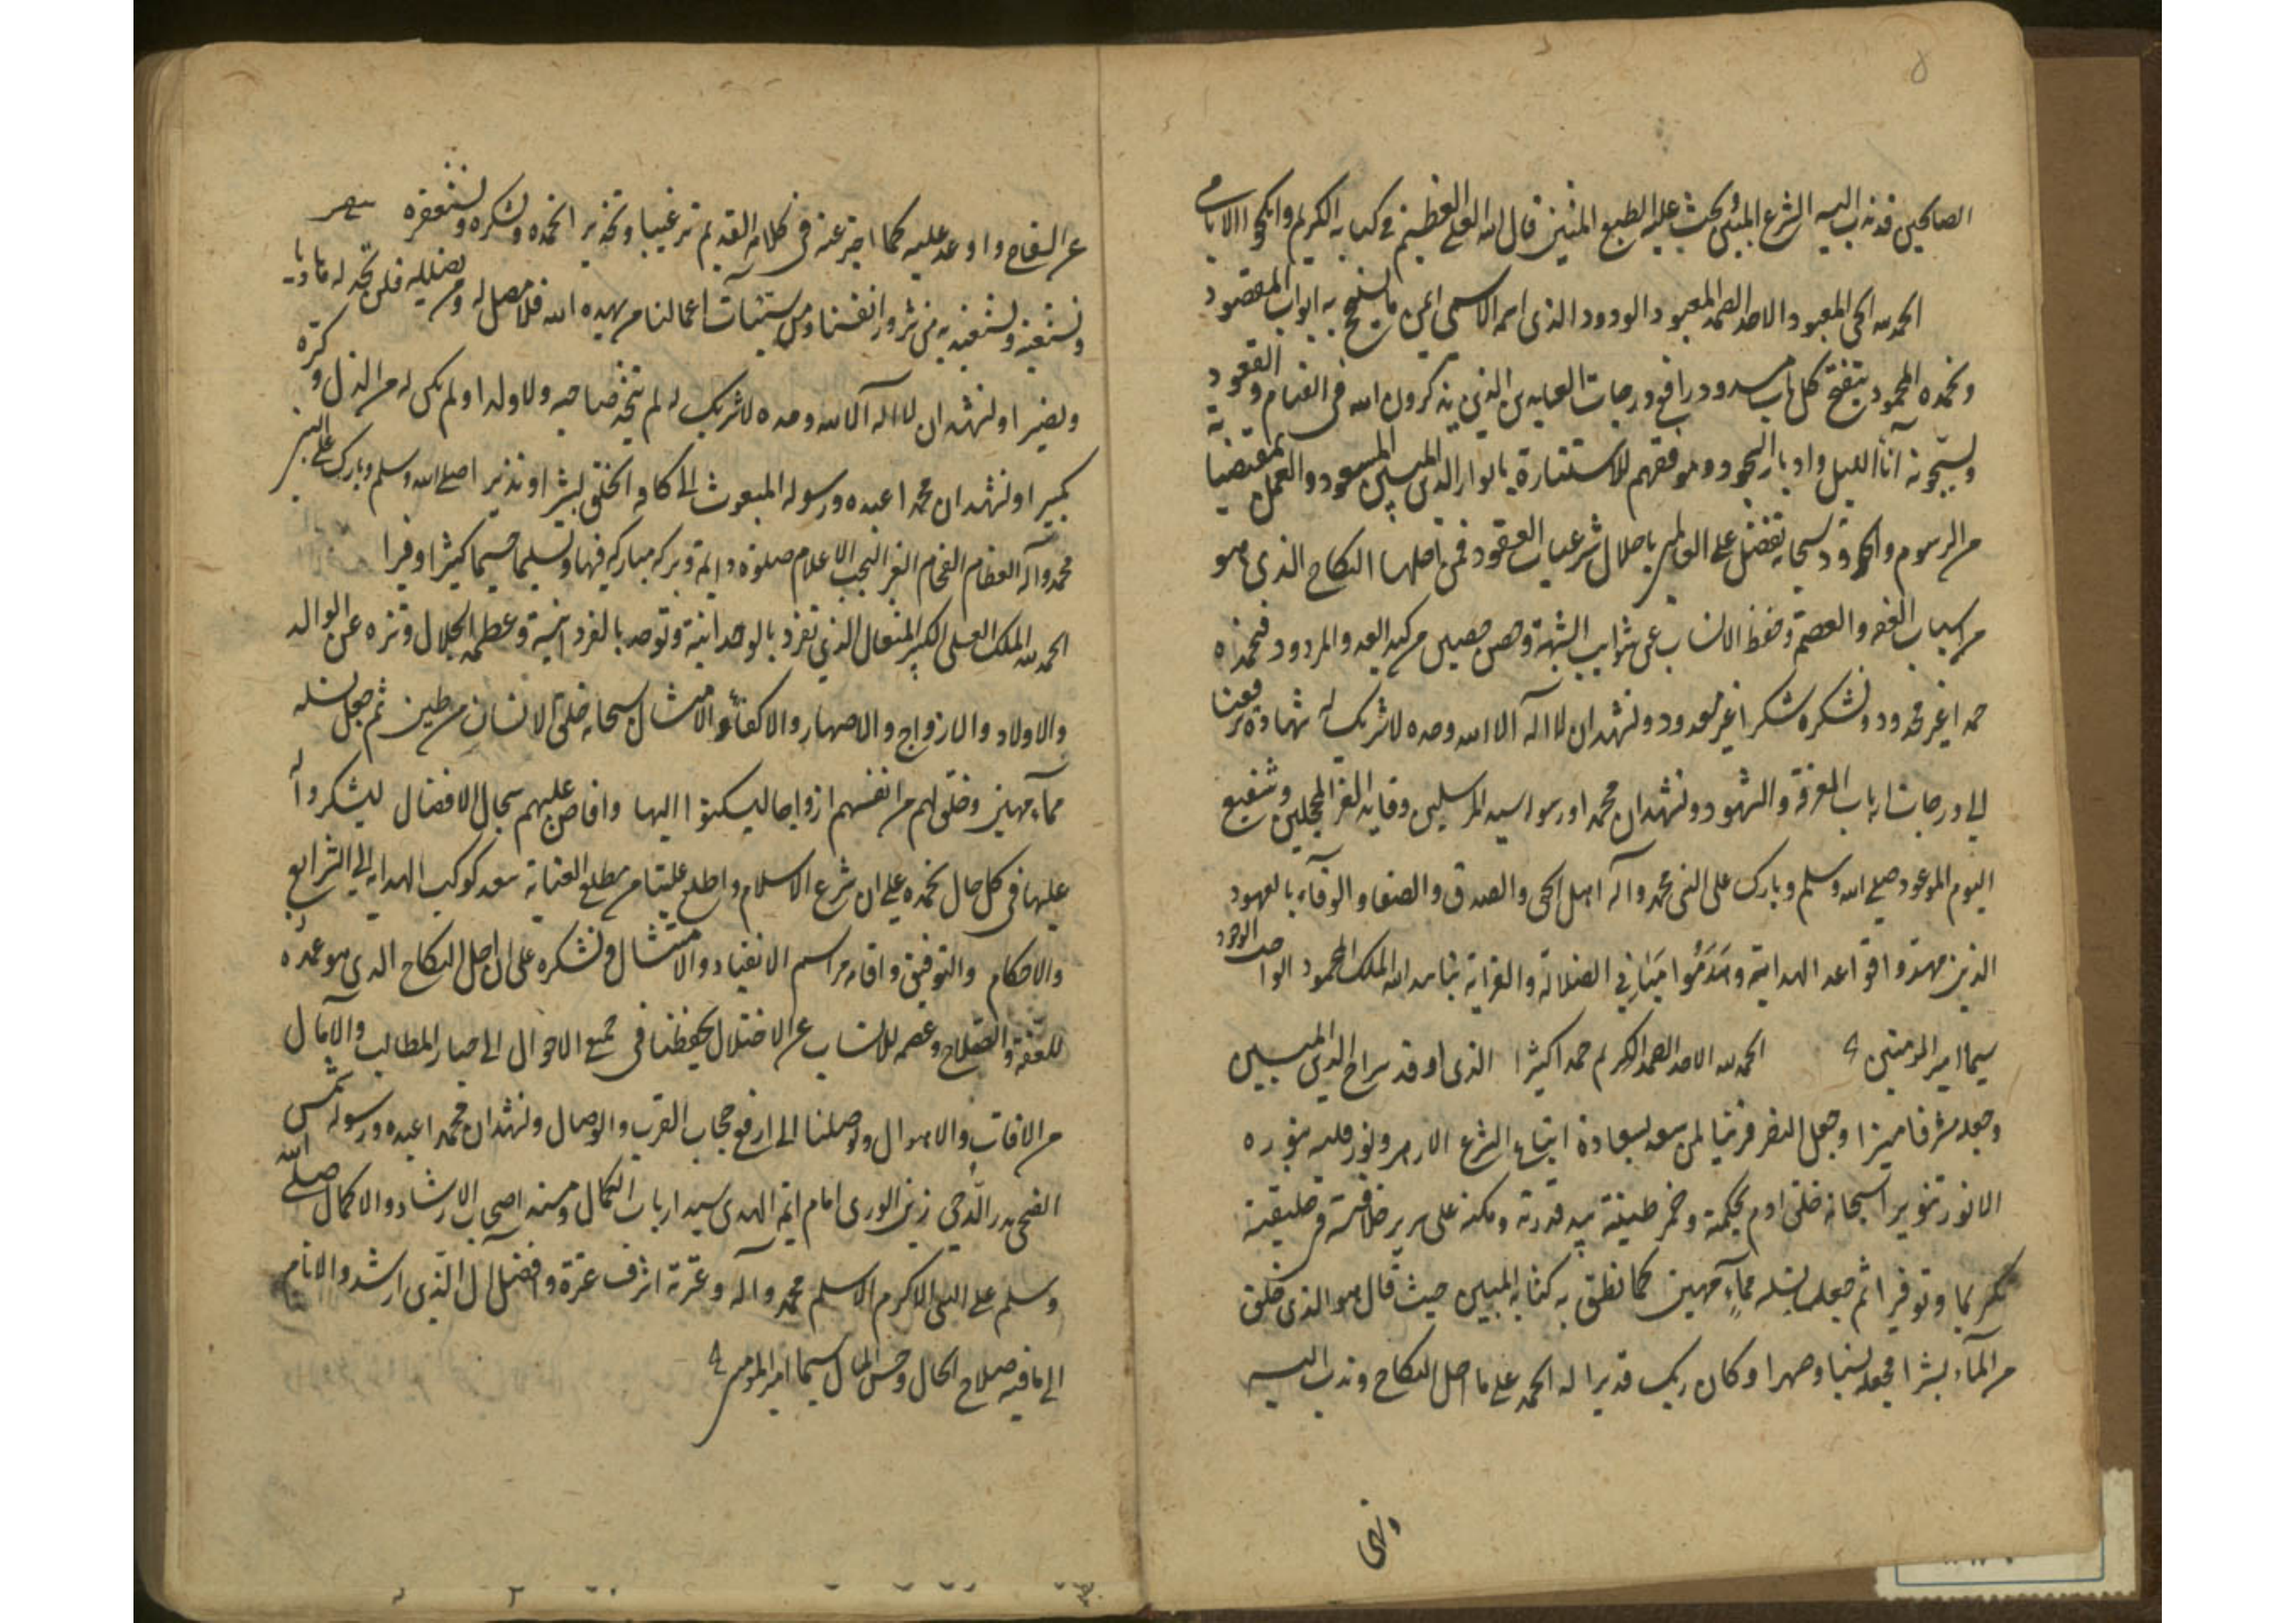 الصالحین قد ندب الیه الشرع المبین و حث علیه الطبع المتین قال الله العلی العظیم فی کتابه الکریم وانکحوا الایامی
الحمد لله الحی المعبود الاحد الصمد المعبود الودود الذی اسمه الاسمی ما یفتح به ابواب المقصود
ونحمده المحمود بتفتح کل باب مسدود رافع درجات العابدین الذین یذکرون الله فی القیام والقعود
ویسبحونه آناء اللیل وادبار السجود وموفقهم للاستنارة بانوار الدین المبین المسعود والعمل بمقتضیاته
من الرسوم والحدود سبحانه تفضل علی العالمین باحلال شرعیات العقود فمن اصلها النکاح الذی هو
من اسباب العفة والعصمة وحفظ الانساب عن شوایب الشبهة وحصن حصین من کید العدو المردود فنحمده
حمدا غیر محدود ونشکره شکرا غیر معدود ونشهد ان لا اله الا الله وحده لا شریک له شهادة ترفعنا
الی درجات ارباب المعرفة والشهود ونشهد ان محمدا رسوله سید المرسلین وقاید الغر المحجلین وشفیع
الیوم الموعود صلی الله وسلم وبارک علی النبی محمد وآله اهل الحق والصدق والصفا والوفاء بالعهود
الذین مهدوا قواعد الهدایة وهدموا مبانی الضلالة والغوایة بتایید الله الملک المحمود الواجب الوجود
سیما امیر المومنین الحمد لله الاحد الصمد الکریم حمدا کثیرا الذی اوقد سراج الدین المبین
وجعله مشرفا منیرا وجعل النصر قرینا لمن سعد بسعادة اتباع الشرع الازهر ونور قلبه بنوره
الانور تنویرا سبحانه خلق ادم بحکمته وخمر طینته بید قدرته ومکنه علی سریر خلافته فی خلیقته
تکریما وتوقیرا ثم جعل نسله من ماء مهین کما نطق به کتابه المبین حیث قال هو الذی خلق
من الماء بشرا فجعله نسبا وصهرا وکان ربک قدیرا له الحمد علی ما احل النکاح وندب الیه
ونهی
عن السفاح واوعد علیه کما اخبر عنه فی کلامه القدیم ترغیبا وتحذیرا نحمده ونشکره ونستغفره
ونستعینه ونستعیذ به من شرور انفسنا ومن سیئات اعمالنا من یهده الله فلا مضل له ومن یضلله فلن تجد له هادیا
ونصیرا ونشهد ان لا اله الا الله وحده لا شریک له لم یتخذ صاحبة ولا ولدا ولم یکن له من الذل وکبره
تکبیرا ونشهد ان محمدا عبده ورسوله المبعوث الی کافة الخلق بشیرا ونذیرا صلی الله وسلم وبارک علی النبی
محمد وآله العظام الفخام الغر النجب الاعلام صلوة دایمة وبرکة مبارکة فیها وتسلیما جسیما کثیرا وفیرا
الحمد لله الملک العلی الکبیر المتعال الذی تفرد بالوحدانیة وتوحد بالفردانیة وعظمة الجلال وتنزه عن الوالد
والاولاد والازواج والاصهار والاکفاء والامثال سبحانه خلق الانسان من طین ثم جعل نسله
من ماء مهین وخلق لهم من انفسهم ازواجا لیسکنوا الیها وافاض علیهم سجال الافضال لیشکروا له
علیها فی کل حال نحمده علی ان شرع الاسلام واطلع علینا من مطلع العنایة سعد کوکب الهدایة الی الشرایع
والاحکام والتوفیق واقامة مراسم الانقیاد والامتثال ونشکره علی ان احل النکاح الذی هو عمدة
للعفة والصلاح وعصمة للانساب عن الاختلال لیحفظنا فی جمیع الاحوال الی حیازة المطالب والآمال
من الافات والاهوال ویوصلنا الی ارفع حجاب القرب والوصال ونشهد ان محمدا عبده ورسوله شمس
الضحی بدر الدجی زین الوری امام ائمة الهدی سید ارباب الکمال وسند اصحاب الارشاد والاکمال صلی الله
وسلم علی النبی الاکرم الاسلم محمد وآله وعترته اشرف عترة وافضل آل الذین ارشدوا الانام
الی ما فیه صلاح الحال وحسن المآل سیما امیر المومنین